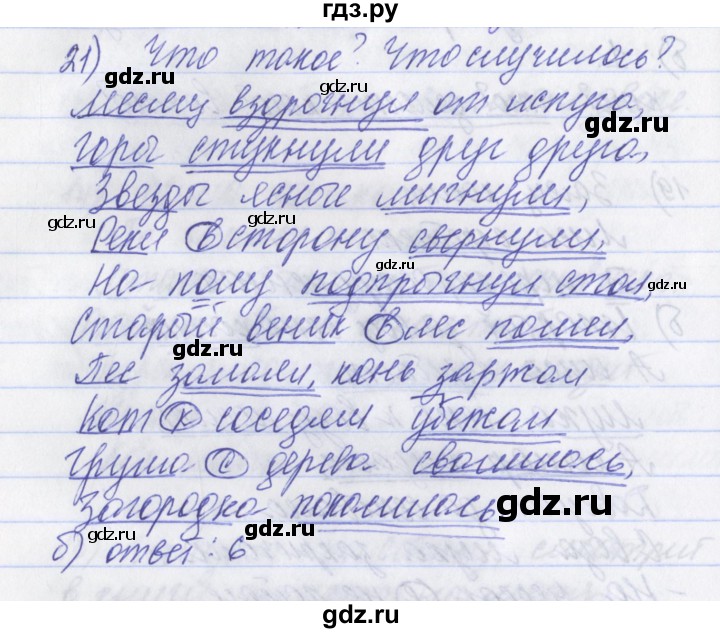 гдз.ру
21) Что такое? Что случилось?
gdz.ru
gdz.ru
Месяц вздрогнул от испуга,
gdz.ru
горы стукнули друг друга,
Звезды ясные мигнули,
gdz.ru
gdz.ru
Реки в сторону свернули.
gdz.ru
На полу подпрыгнул стол,
gdz.ru
gdz.ru
Старый веник в лес пошел,
gdz.ru
Пес залаял, конь заржал
Кот к соседям убежал
gdz.ru
Груша с дерева свалилась,
gdz.ru
Загородка покосилась
gdz.ru
gdz.ru
б) ответ: 6
gdz.ru